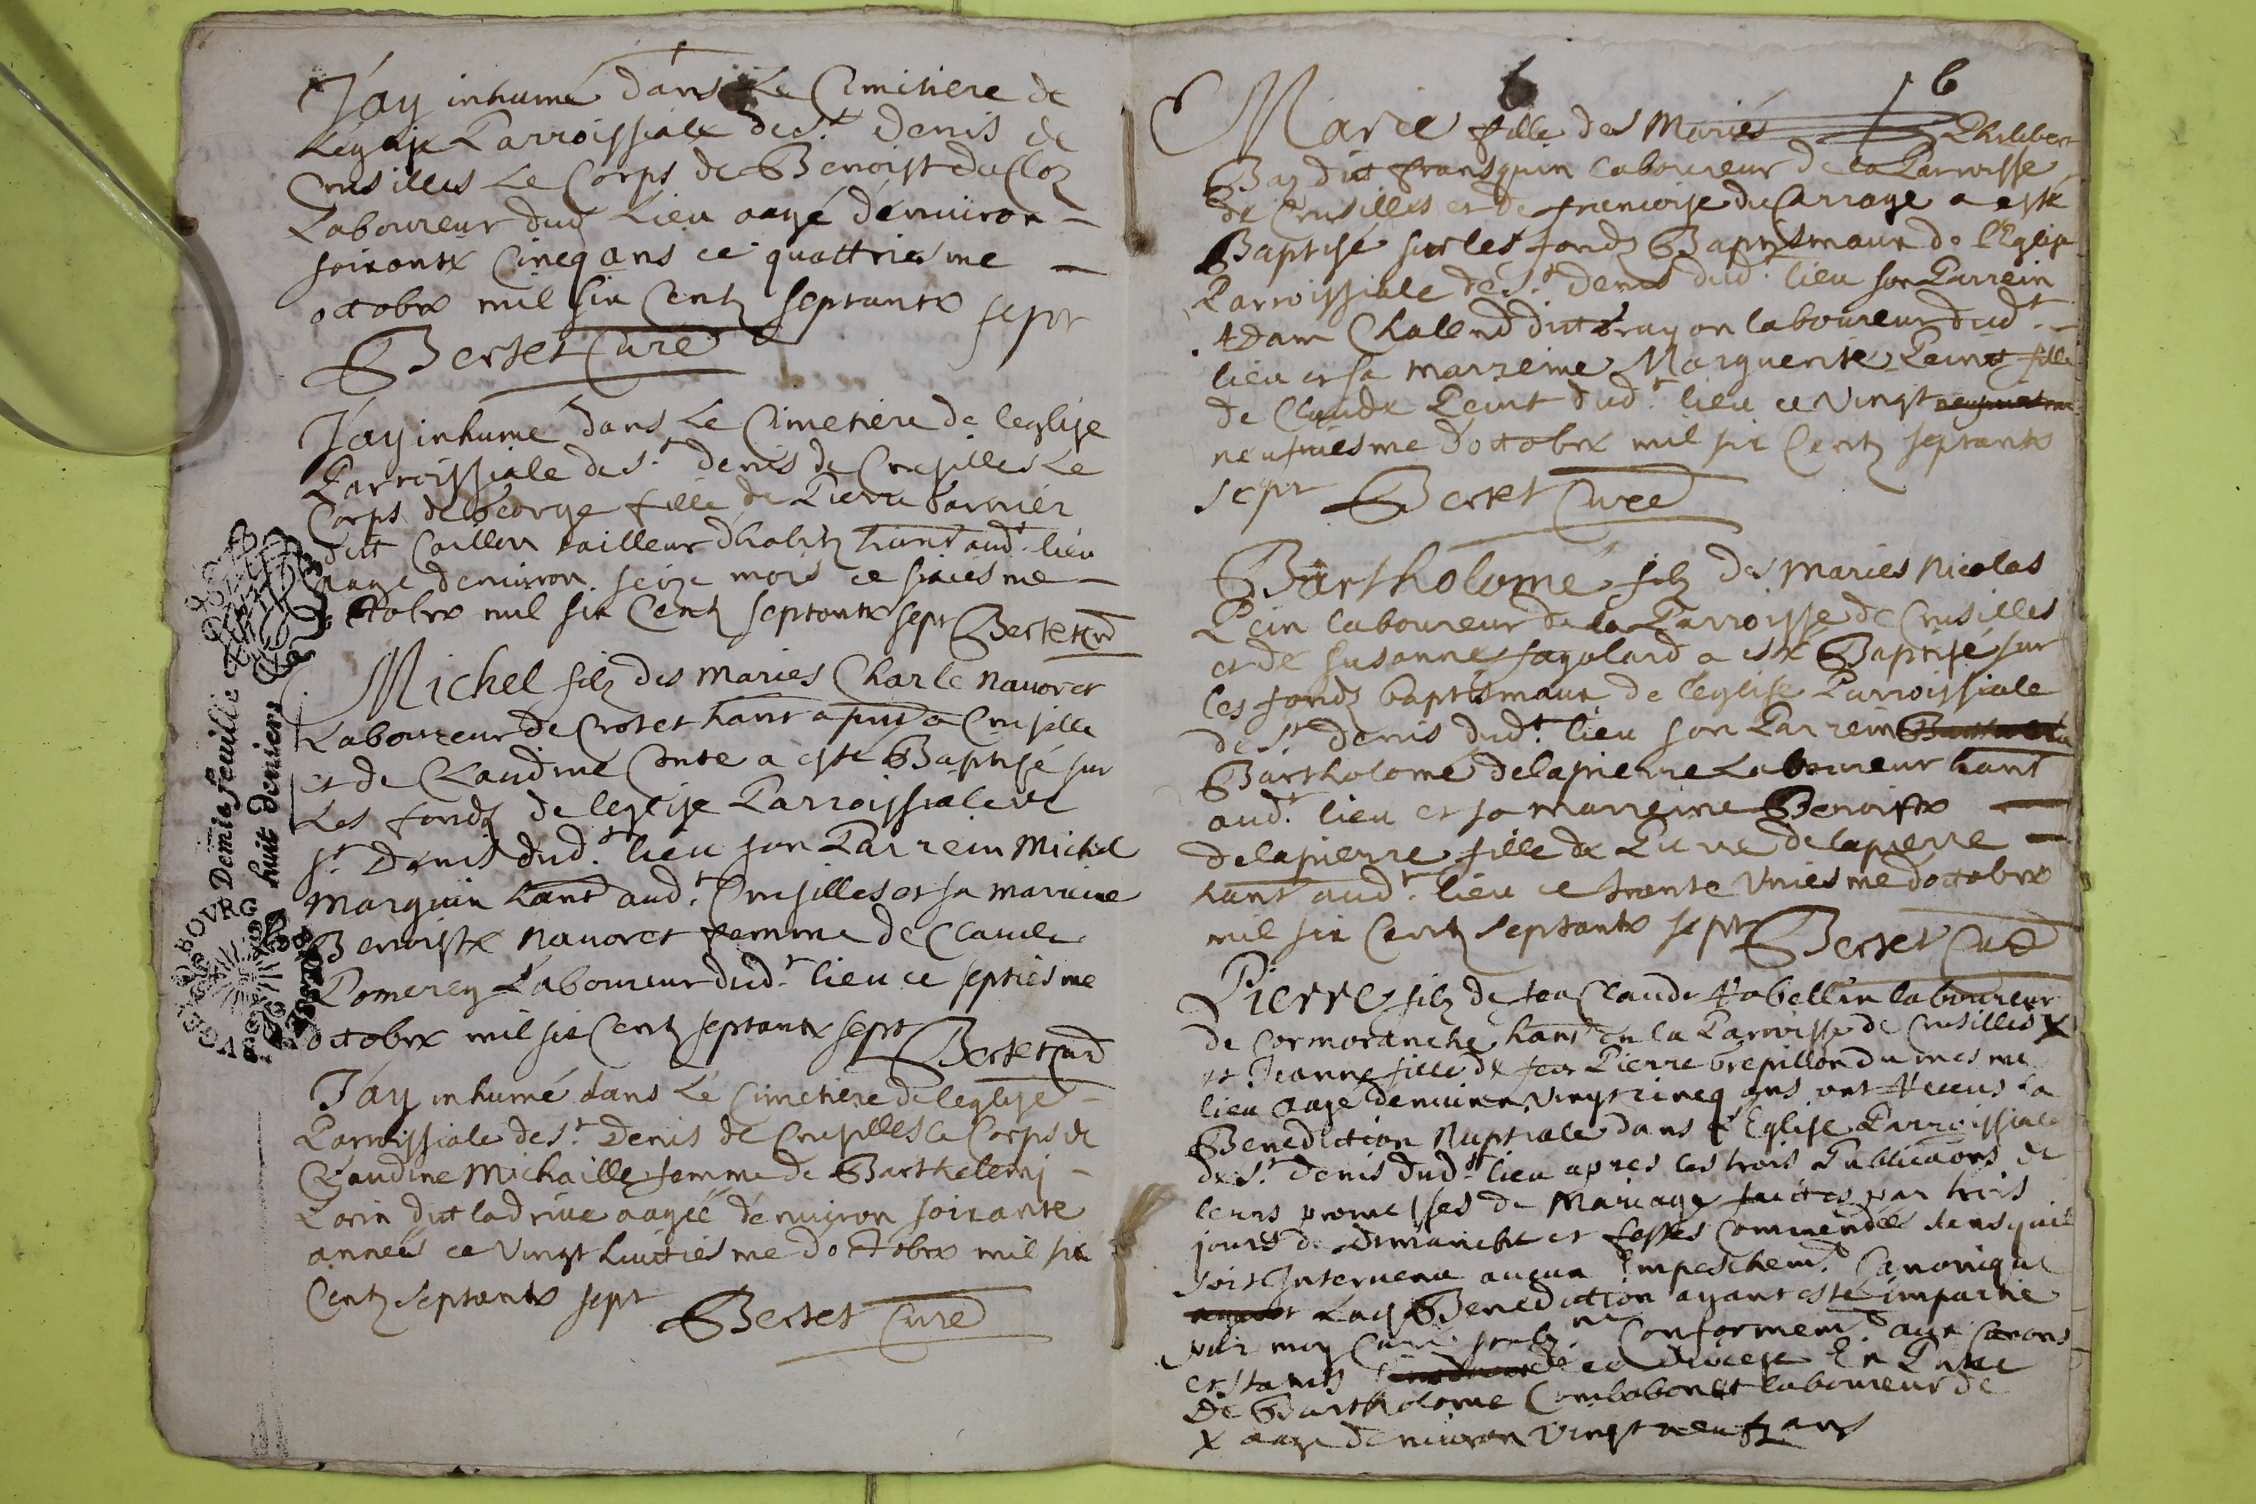 Jay inhumé dans Le Cimitiere de
Leglise Parroissiale de St Denis de
Crusilles Le Corps de Benoist ducloz
Laboureur dud Lieu aagé denuiron
soixante Cincq ans ce quattriesme
octobre mil six Centz septante sept
Bertet Curé
Jay inhumé dans Le Cimetiere de leglise
Parroissiale de St denis de Crusilles Le
Corps de George fille de Pierre barnier
dit Caillon tailleur dhabitz hant aud lieu
aage denuiron seize mois ce sixiesme
octobre mil six Centz septante sept Bertet Curé
Michel filz des mariés Charle nauoret
Laboureur de Crotet hant a pnt a Crusille
et de Claudine Conte a este Baptisé sur
Les fondz de leglise Parroissiale de
St Denis dudt lieu son Parrein Michel
Marguin hant audt Crusilles et sa marreine
Benoiste nauoret femme de Claude
Pomerey Laboureur dudt lieu ce septiesme
octobre mil six Centz septante sept Bertet Curé
Jay inhumé dans Le Cimetiere de leglise
Parroissiale de St Denis de Crusilles le Corps de
Claudine Michaille femme de Barthelemi
Lorin dit ladriue aagée denuiron soixante
année ce vingt huictiesme doctobre mil six
Centz septante sept
Bertet Curé
6
Marie fille des Mariés Philibert
Baz dit fransquin laboureur de la Parroisse
de Crusilles et de francoise du Carrage a este
Baptisé sur les fondz Baptismaux de l'Eglise
Parroissiale de St denis dud lieu son Parrein
Adam Chalend dit dragon laboureur dudt
lieu et sa marreine Marguerite Peint fille
de Claude Peint dudt lieu ce vingt
neufuiesme doctobre mil six Centz septante
sept Bertet Curé
Bartholomé filz des mariés Nicolas
Pein laboureur de la Parroisse de Crusilles
et de Susanne fagolard a este Baptisé sur
les fondz baptismaux de l'eglise Parroissiale
de St denis dudt lieu son Parrein
Bartholomé delapierre Laboureur hant
audt lieu et sa marreine Benoiste
delapierre fille de Pierre delapierre
hant audt lieu ce trente vniesme doctobre
mil six Centz septante sept Bertet Curé
Pierre filz de feu Claude Nobellin laboureur
de Cormoranche hant en la Parroisse de Crusilles X
et Jeanne fille de feu Pierre brepillon du mesme
lieu aage denuiron vingt cincq ans ont Receus La
Benediction Nuptiale dans l'Eglise Parroissiale
de St denis dudt lieu apres les trois Publications de
leurs promesses de Mariage faictes par trois
jours de dimanche et festes Commendés sans quil
soit Interuenu aucun Empeschemt Canonique
Lad Benediction ayant esté impartie
par moy Curé Conformemt aux Canons
et statutz du diocese En Pnce
de Bartholome Combabonet laboureur de
X aage denuiron vingt neufz ans
DEmie feuille
huit deniers
BOVRG